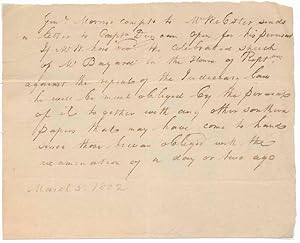 Genl. Morris compts to Mr Webster sends
a letter to Comptr open for his perusal
If Mr W has recd the celebrated speech
of Mr Bayard in the House of Reptives
against the repeal of the Judiciary law
he will be much obliged by the perusal
of it together with any other southern
papers that may have come to hand
since those he was obliged with the
examination of a day or two ago
March 5. 1802